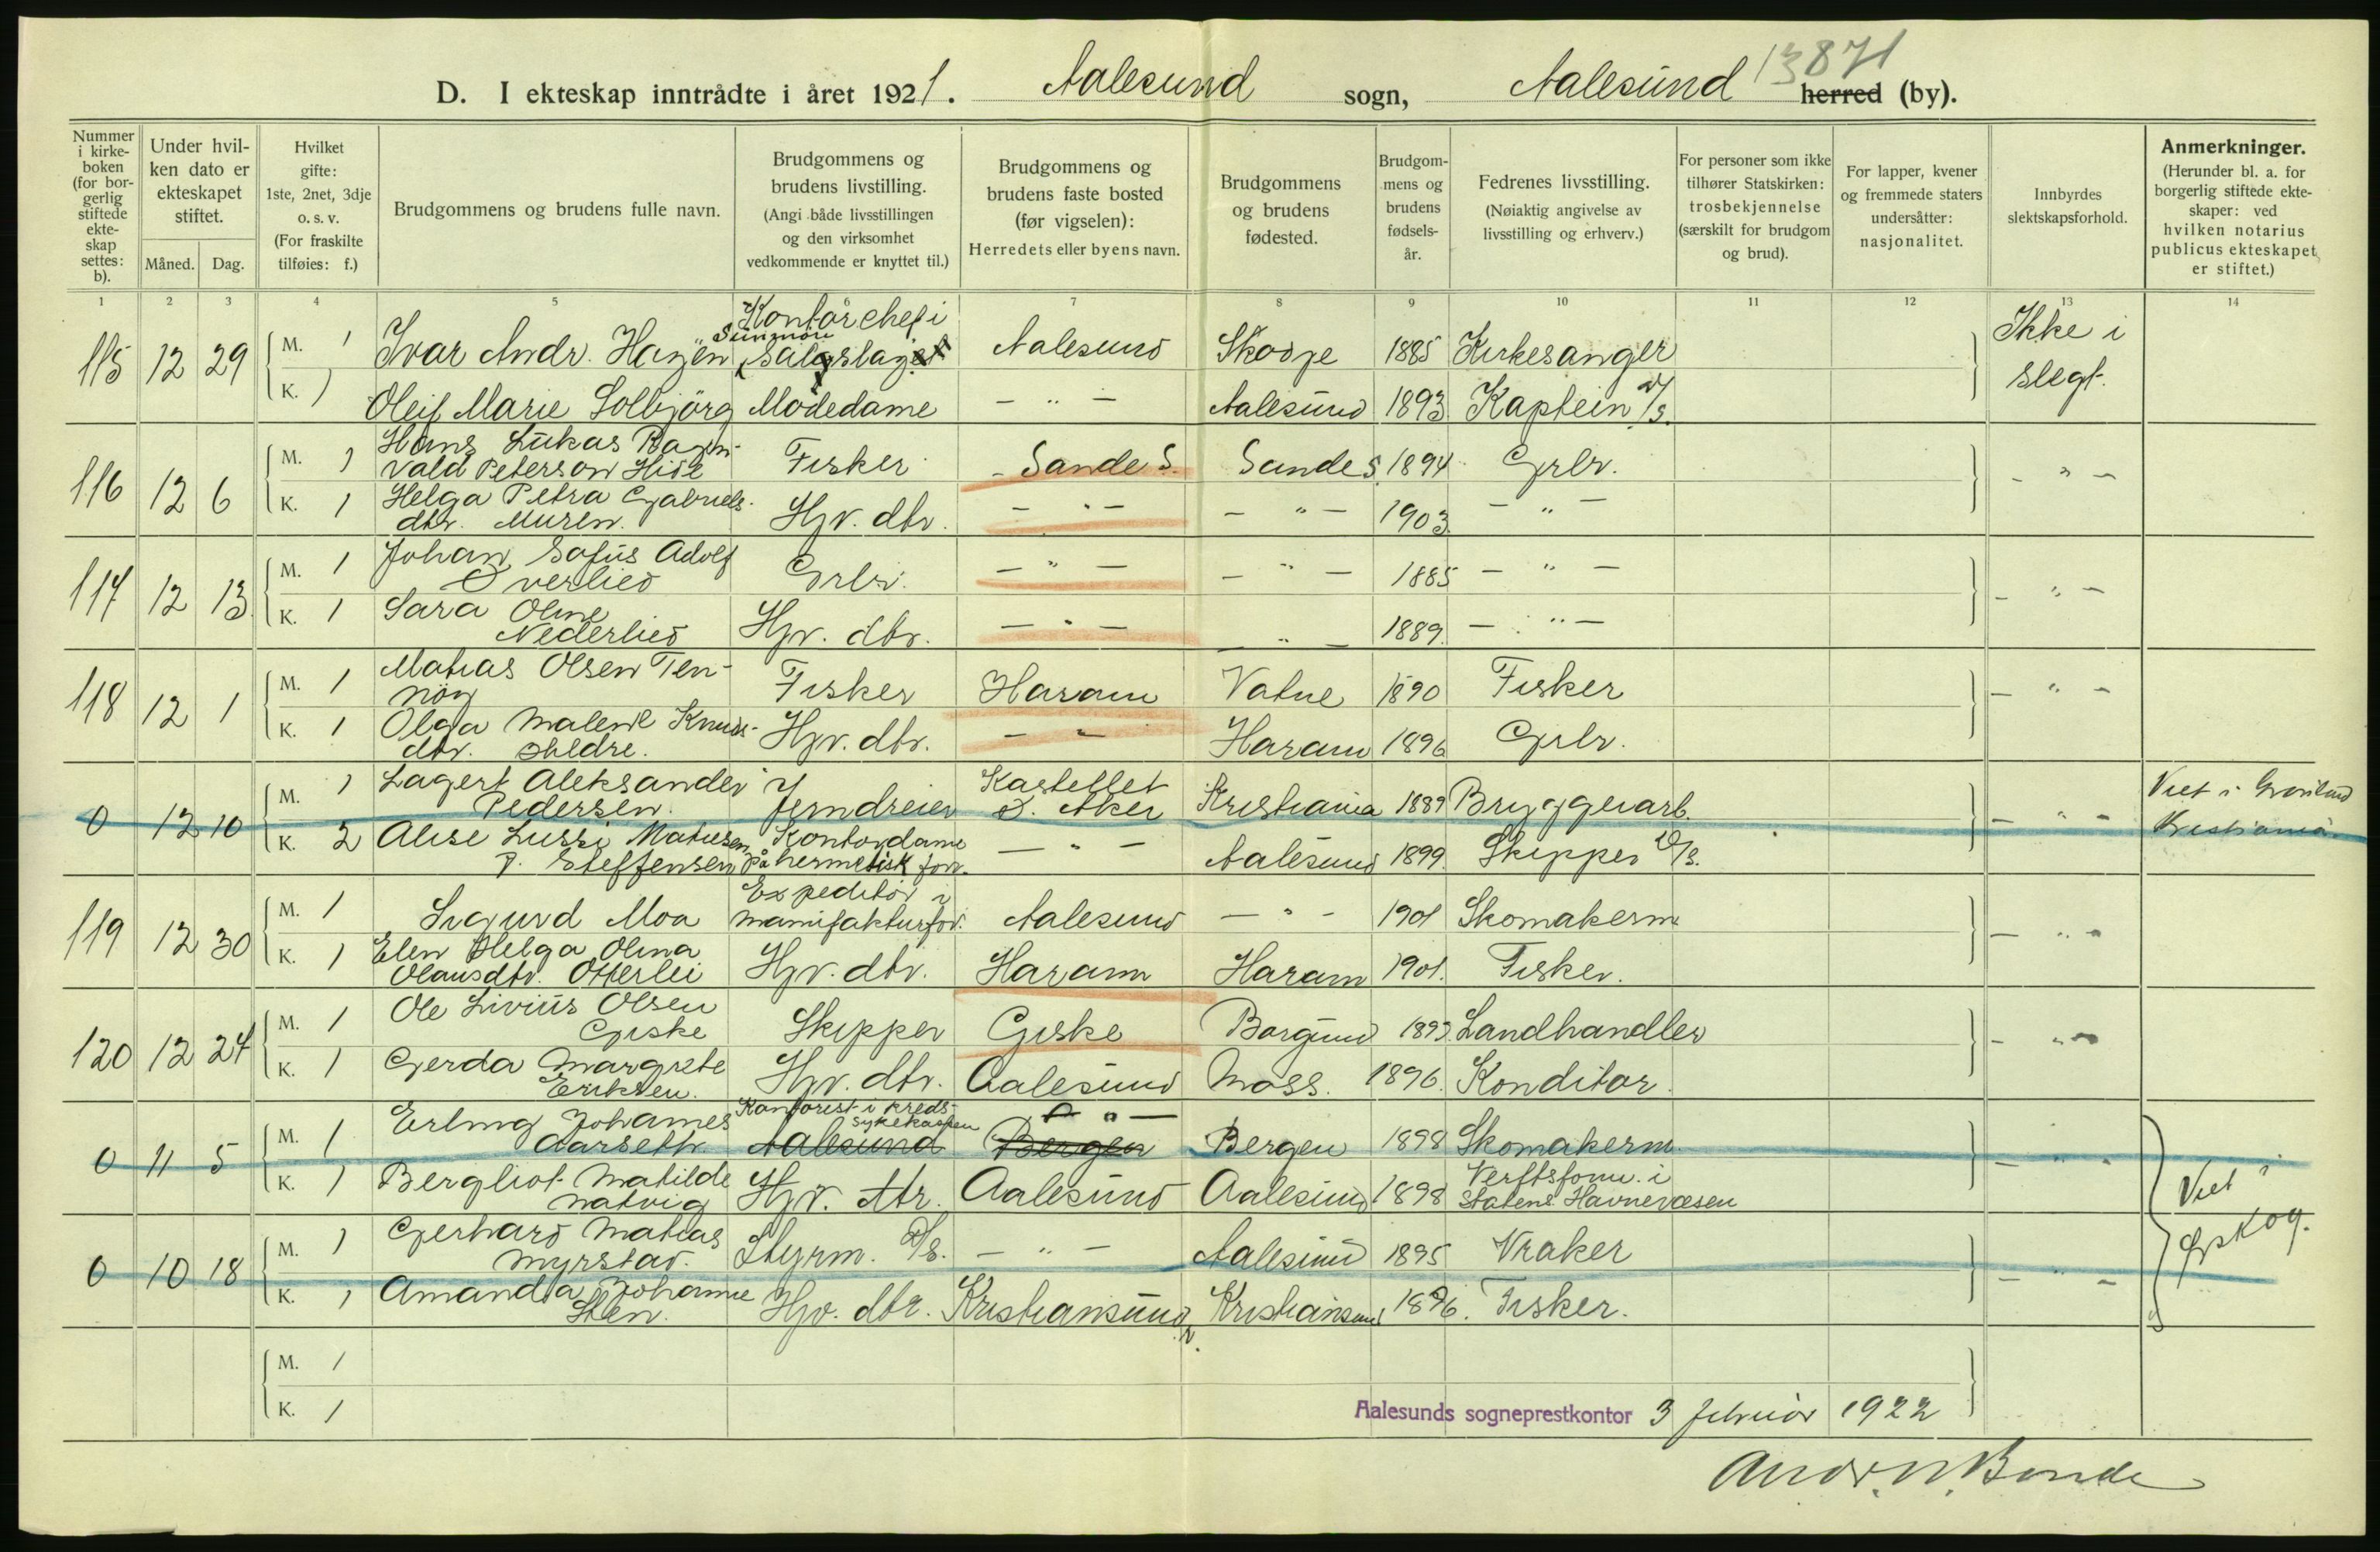 13871
D. I ekteskap inntrådte i året 1921. Aalesund sogn, Aalesund herred (by).
Nummer i kirke-boken (for bor-gerlig stiftede ekte-skap settes: b).
Under hvil-ken dato er ekteskapet stiftet.
Måned. Dag.
Hvilket gifte: 1ste, 2net, 3dje o. s. v. (For fraskilte tilføies: f.)
Brudgommens og brudens fulle navn.
Brudgommens og brudens livstilling. (Angi både livsstillingen og den virksomhet vedkommende er knyttet til.)
Brudgommens og brudens faste bosted (før vigselen): Herredets eller byens navn.
Brudgommens og brudens fødested.
Brudgom-mens og brudens fødsels-år.
Fedrenes livsstilling. (Nøiaktig angivelse av livsstilling og erhverv.)
For personer som ikke tilhører Statskirken: trosbekjennelse (særskilt for brudgom og brud).
For lapper, kvener og fremmede staters undersåtter: nasjonalitet.
Innbyrdes slektskapsforhold.
Anmerkninger. (Herunder bl. a. for borgerlig stiftede ekte-skaper: ved hvilken notarius publicus ekteskapet er stiftet.)
1 2 3 4 5 7 8 9 10 11 12 13 14
Kontorchef i
Sunnmöre
115 12 29 M. 1 Ivar Andr. Hagen salgslaget Aalesund Skodje 1885 Kirkesanger Ikke i slegt.
K. 1 Oleif Marie Solbjörg Modedame - " - Aalesund 1893 Kaptein D/S.
116 12 6 M. 1 Hans Lukas Ragn-
vald Peterson Hide Fisker Sande S. Sande S. 1894 Grbr. - " -
K. 1 Helga Petra Gabriels-
dtr. Muren. Hjv. dtr. - " - - " - 1903 - " -
117 12 13 M. 1 Johan Sofus Adolf
Överlied Grbr. - " - - " - 1885 - " - - " -
K. 1 Sara Oline
Nederlied Hjv. dtr. - " - - " - 1889. - " -
118 12 1 M. 1 Matias Olsen Ten-
nög Fisker Haram Vatne 1890 Fisker - " -
K. 1 Olga Malene Knuds-
dtr. Hildre. Hjv. dtr. - " - Haram 1896 Grbr.
0 12 10 M. 1 Lagert Aleksander
Pedersen. Jerndreier Kastellet
Ö. Aker Kristiania 1889 Bryggeriarb. - " - Viet i Grønlund
Kristiania
K. 2 Alise Lussi Matiesen Kontordame
f. Steffensen på hermetisk forr. - " - Aalesund 1899. Skipper D/S.
119 12 30 M. 1 Sigurd Moa Expeditör i
manufakturforr. Aalesund - " - 1901 Skomakerm. - " -
K. 1 Elen Helga Olina
Olausdtr. Otterlei Hjv. dtr. Haram Haram 1901. Fisker.
120 12 24 M. 1 Ole Livius Olsen
Giske Skipper Giske Borgund 1893. Landhandler - " -
K. 1 Gerda Margrete
Eriksen. Hjv. dtr. Aalesund Moss. 1896. Konditor.
0 11 5 M. 1 Erling Johannes
Aarseth. Kontorist i kreds-
sykekassen Aalesund - " - Bergen Bergen 1898 Skomakerm. - " -
K. 1 Bergliot Matilde
Natvig Hjv. dtr. Aalesund Aalesund 1898 Verftsform. i
Statens Havnevæsen Viet i
0 10 18 M. 1 Gerhard Matias
Myrstad. Styrm. D/S. - " - Aalesund 1895 Vraker - " -
K. 1 Amanda Johanne
Sten. Hjv. dtr. Kristiansund N. Kristiansund 1896. Fisker.
M. 1
K. 1
Aalesunds sogneprestkontor 3 februar 1922
Andr. N. Bonde